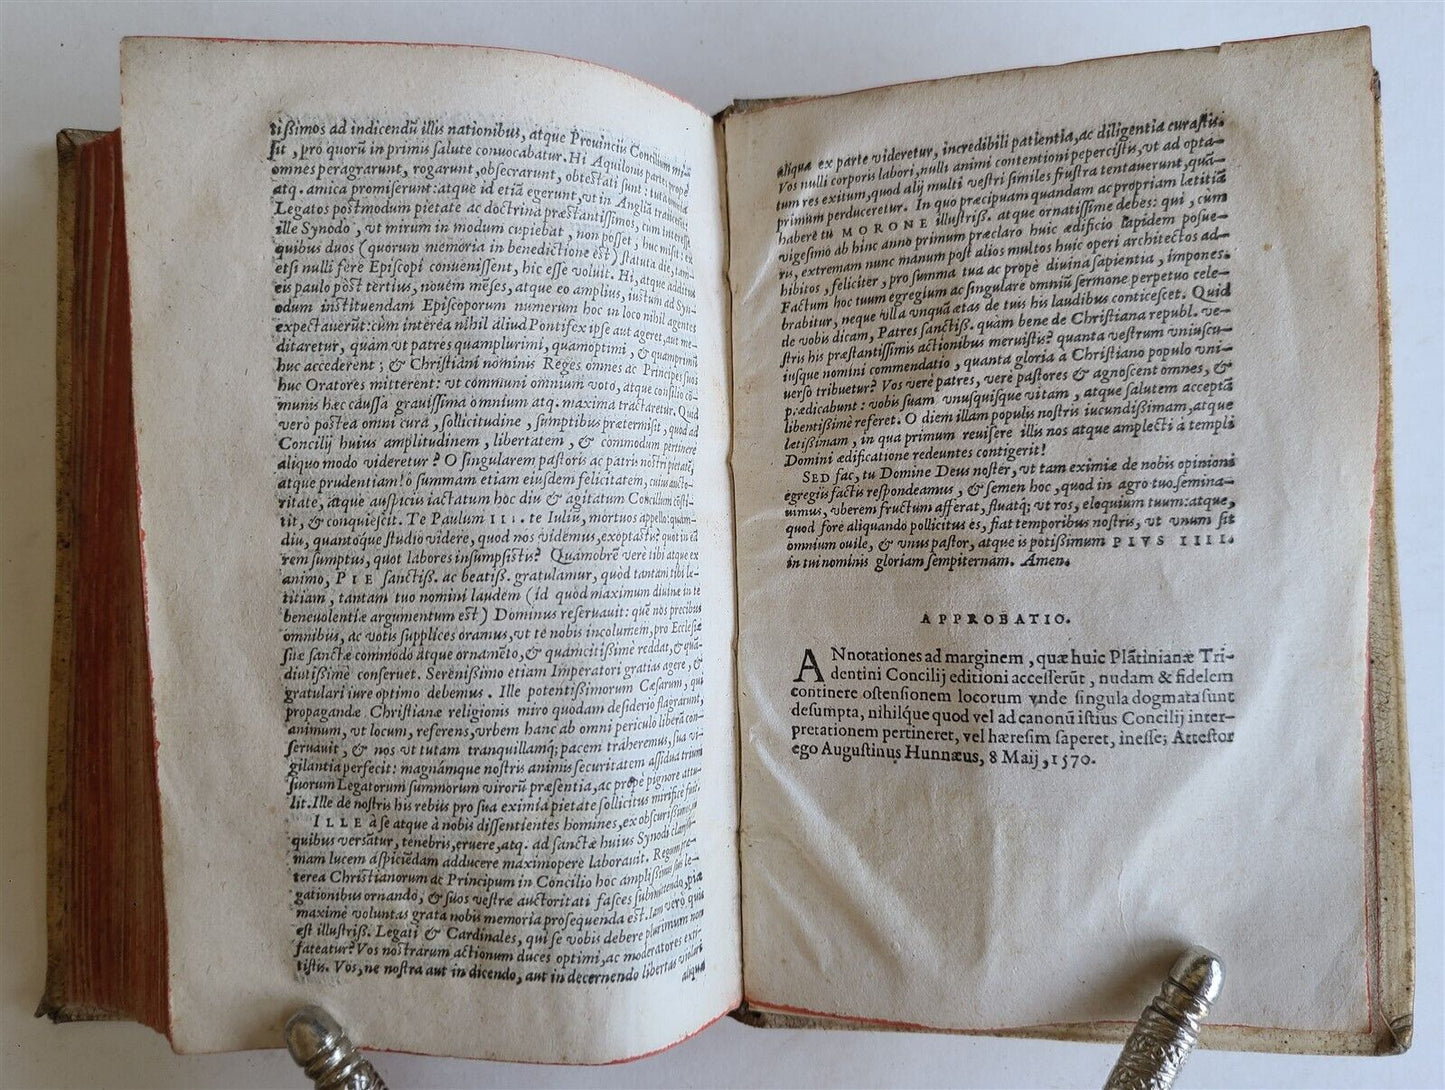 tißimos ad indicendũ illis nationibus, atque Provinciis Concilium mi-
sit, pro quorũ in primis salute convocabatur. Hi Aquilonis parte prope
omnes peragrarunt, rogarunt, obsecrarunt, obtestati sunt: tuta omnia
atq. amica promiserunt: atque id etiã egerunt, ut in Angliã traiicerent.
Legatos postmodum pietate ac doctrina præstantissimos, cum interesse
ille Synodo, ut mirum in modum cupiebat, non posset, huc misit: ex
quibus duos (quorum memoria in benedictione est) statuta die, tam-
etsi nulli ferè Episcopi convenissent, hic esse voluit. Hi, atque additus
eis paulo pòst tertius, novem mẽses, atque eo amplius, iustum ad Syn-
odum instituendam Episcoporum numerum hoc in loco nihil agentes
expectauerũt: cùm interea nihil aliud Pontifex ipse aut ageret, aut me-
ditaretur, quàm ut patres quamplurimi, quamoptimi, & quamprimũ
huc accederent; & Christiani nominis Reges omnes ac Principes suos
huc Oratores mitterent: ut communi omnium voto, atque consilio cõ-
munis hæc caussa gravissima omnium atq. maxima tractaretur. Quid
verò postea omni curâ, sollicitudine, sumptibus prætermisit, quod ad
Concilij huius amplitudinem, libertatem, & commodum pertinere
aliquo modo videretur? O singularem pastoris ac patris nostri pietatẽ,
atque prudentiam! ò summam etiam eiusdem felicitatem, cuius aucto-
ritate, atque auspiciis iactatum hoc diu & agitatum Concilium cõsti-
tit, & conquiescit. Te Paulum III. te Iuliũ, mortuos appello: quam-
diu, quantóque studio videre, quod nos videmus, exoptastis? quot in eã
rem sumptus, quot labores insumpsistis? Quamobrẽ verè tibi atque ex
animo, PIE sanctiß. ac beatiß. gratulamur, quòd tantam tibi læ-
titiam, tantam tuo nomini laudem (id quòd maximum divinæ in te
benevolentiæ argumentum est) Dominus reservauit: quẽ nos precibus
omnibus, ac votis supplices oramus, ut te nobis incolumem, pro Ecclesiæ
suæ sanctæ commodo atque ornamẽto, & quàm citißimè reddat, & quã-
diutißimè conservet. Serenißimo etiam Imperatori gratias agere, &
gratulari iure optimo debemus. Ille potentißimorum Cæsarum, qui
propagandæ Christianæ religionis miro quodam desiderio flagrarunt,
animum, ut locum, referens, urbem hanc ab omni periculo liberã con-
seruauit, & nos ut tutam tranquillamq; pacem traheremus, sua vi-
gilantia perfecit: magnámque nostris animis securitatem assidua trium
suorum Legatorum summorum virorũ præsentia, ac propè pignore attu-
lit. Ille de nostris his rebus pro sua eximia pietate sollicitus mirificè fuit.
ILLE à se atque à nobis dissentientes homines, ex obscurißimis, in
quibus versãtur, tenebris, eruere, atq. ad sanctæ huius Synodi clariss-
mam lucem aspiciẽdam adducere maximopere laboravit. Regum præ-
terea Christianorum ac Principum in Concilio hoc amplißimis suis le-
gationibus ornando, & suos vestræ auctoritati fasces submittendo, pia
maximè voluntas grata nobis memoria prosequenda est. Iam verò quis
est illustriß. Legati & Cardinales, qui se vobis debere plurimum non
fateatur? Vos nostrarum actionum duces optimi, ac moderatores exti-
tistis. Vos, ne nostra aut in dicendo, aut in decernendo libertas violari
aliqua
aliqua ex parte videretur, incredibili patientia, ac diligentia curastis.
Vos nulli corporis labori, nulli animi contentioni pepercistis, ut ad opta-
tum res exitum, quod alij multi vestri similes frustra tentauerunt, quã-
primum perduceretur. In quo præcipuam quandam ac propriam lætitiã
haberè tu MORONE illustriß. atque ornatissime debes: qui, cum
vigesimo ab hinc anno primum præclaro huic ædificio lapidem posue-
ris, extremam nunc manum post alios multos huic operi architectos ad-
hibitos, feliciter, pro summa tua ac propè divina sapientia, impones.
Factum hoc tuum egregium ac singulare omniũ sermone perpetuo cele-
brabitur, neque ulla unquã ætas de tuis his laudibus conticescet. Quid
de vobis dicam, Patres sanctiß. quàm bene de Christiana republ. ve-
stris his præstantissimis actionibus meruistis? quanta vestrum uniuscu-
iusque nomini commendatio, quanta gloria à Christiano populo uni-
uerso tribuetur? Vos verè patres, verè pastores & agnoscent omnes, &
prædicabunt: vobis suam unusquisque vitam, atque salutem acceptã
libentißimè referet. O diem illam populis nostris iucundißimam, atque
lætißimam, in qua primum reuisere illis nos atque amplecti à templi
Domini ædificatione redeuntes contigerit!
SED fac, tu Domine Deus noster, ut tam eximiæ de nobis opinioni
egregiis factis respondeamus, & semen hoc, quod in agro tuo semina-
uimus, uberem fructum afferat, fluatq; ut ros, eloquium tuum: atque,
quod fore aliquando pollicitus es, fiat temporibus nostris, ut unum sit
omnium ouile, & unus pastor, atque is potißimum PIVS IIII.
in tui nominis gloriam sempiternam. Amen.
APPROBATIO.
ANnotationes ad marginem, quæ huic Plãtinianæ Tri-
dentini Concilij editioni accesserũt, nudam & fidelem
continere ostensionem locorum vnde singula dogmata sunt
desumpta, nihilque quod vel ad canonũ istius Concilij inter-
pretationem pertineret, vel hæresim saperet, inesse; Attestor
ego Augustinus Hunnæus, 8 Maij, 1570.